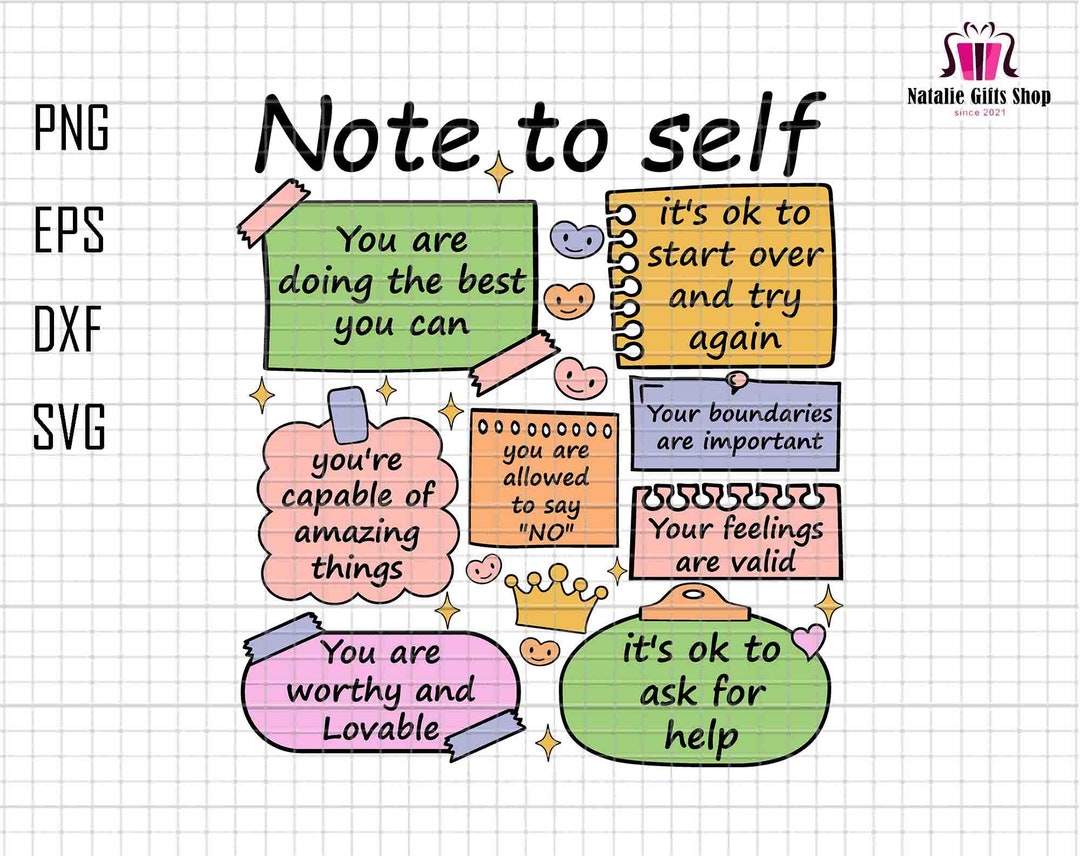 Natalie Gifts Shop
since 2021
PNG
EPS
DXF
SVG
Note to self
You are
doing the best
you can
it's ok to
start over
and try
again
Your boundaries
are important
you're
capable of
amazing
things
you are
allowed
to say
"NO"
Your feelings
are valid
You are
worthy and
Lovable
it's ok to
ask for
help